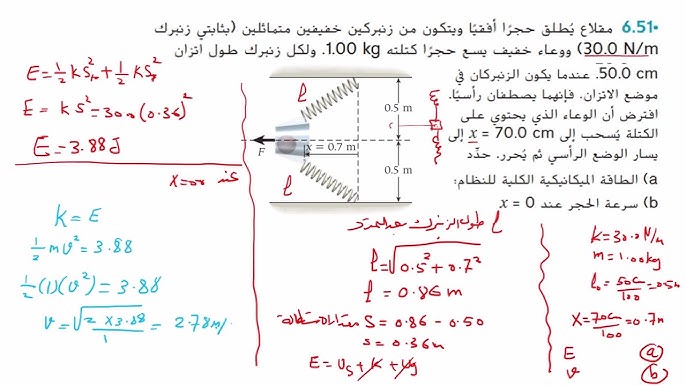 6.51• مقلاع يُطلق حجرًا أفقيًا ويتكون من زنبركين خفيفين متماثلين (بثابتي زنبرك
30.0 N/m) ووعاء خفيف يسع حجرًا كتلته 1.00 kg. ولكل زنبرك طول اتزان
50.0 cm. عندما يكون الزنبركان في
موضع الاتزان، فإنهما يصطفان رأسيًا.
افترض أن الوعاء الذي يحتوي على
الكتلة يُسحب إلى x = 70.0 cm إلى
يسار الوضع الرأسي ثم يُحرر. حدّد
a) الطاقة الميكانيكية الكلية للنظام:
b) سرعة الحجر عند x = 0
0.5 m
0.5 m
x = 0.7 m
F
ℓ
ℓ
c
E = ½ K S² + ½ K S²
E = K S² = 30.0 (0.36)²
E = 3.88 J
عند X=00
K = E
½ m v² = 3.88
½ (1)(v²) = 3.88
v = √(2 × 3.88 / 1) = 2.78 m/s
ℓ طول الزنبرك بعد التمدد
ℓ = √(0.5² + 0.7²)
ℓ = 0.86 m
مقدار الاستطالة S = 0.86 − 0.50
S = 0.36 m
E = Us + K + Ug
K = 30.0 N/m
m = 1.00 kg
ℓ₀ = 50cm/100 = 0.5m
X = 70cm/100 = 0.7m
E a
v b